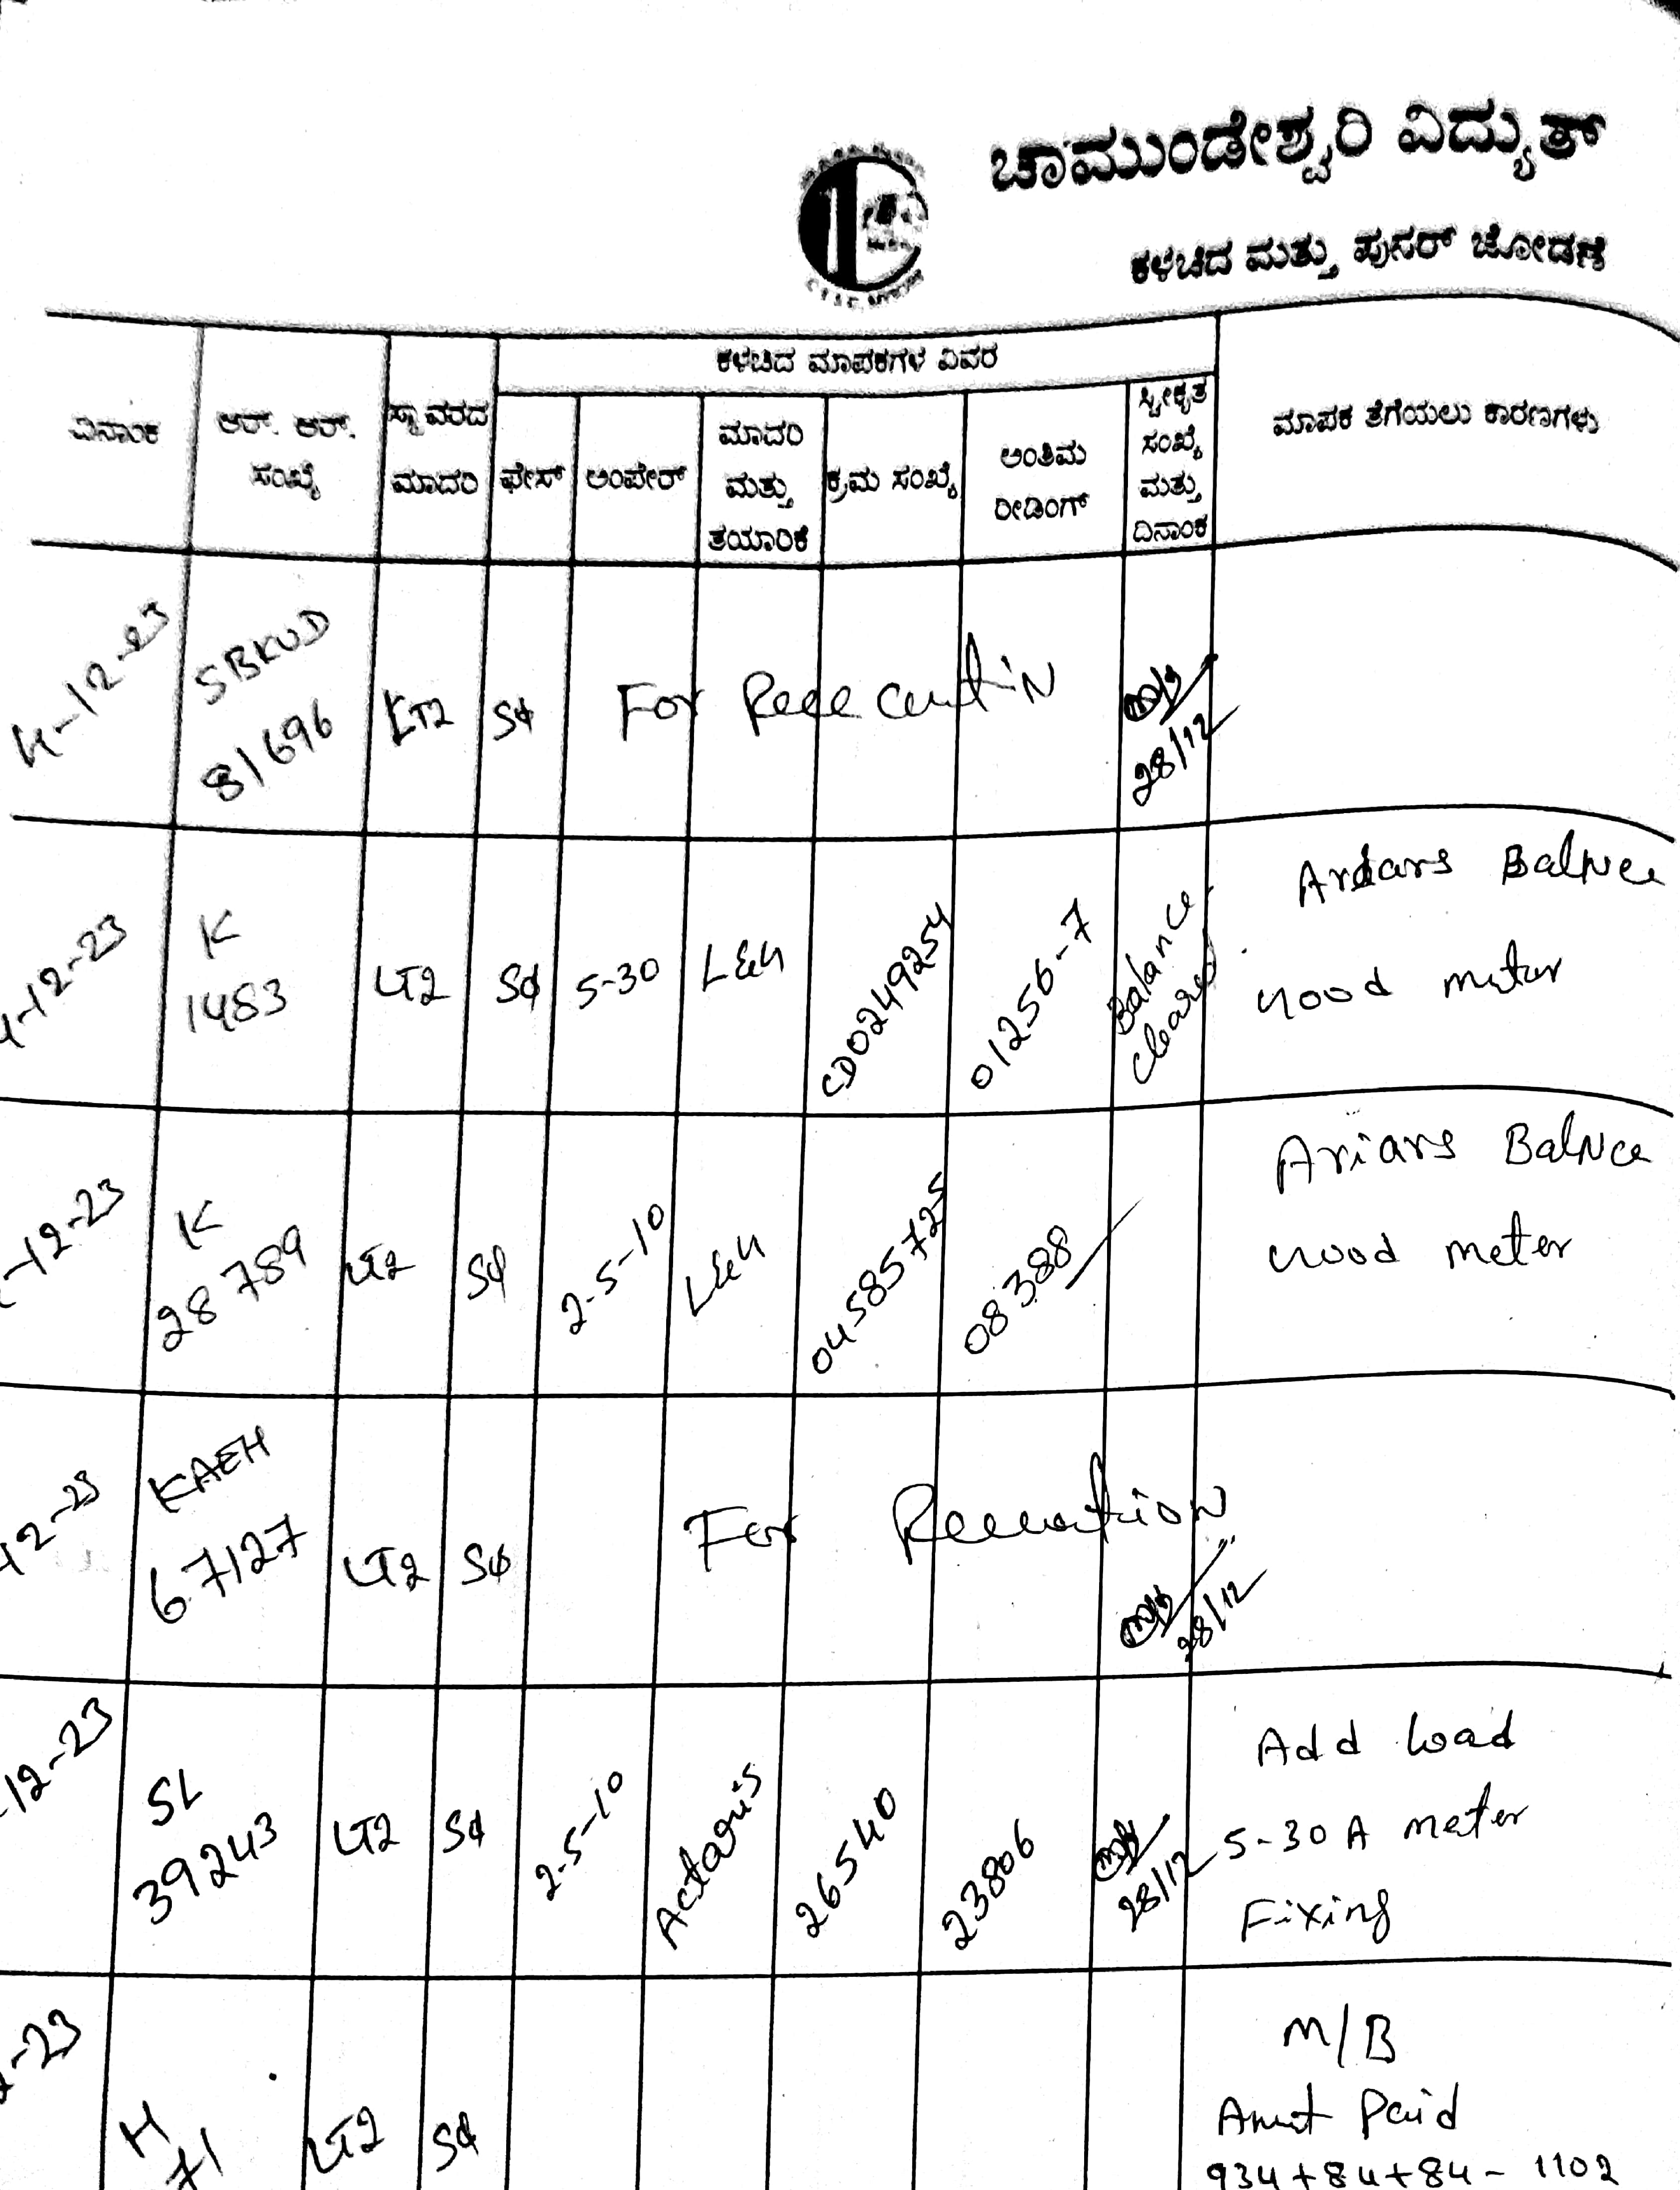 ಚಾಮುಂಡೇಶ್ವರಿ ವಿದ್ಯುತ್
ಕಳಚಿದ ಮತ್ತು ಪುನರ್ ಜೋಡಣೆ
ಕಳಚಿದ ಮಾಪಕಗಳ ವಿವರ
ದಿನಾಂಕ
ಆರ್. ಆರ್.
ಸಂಖ್ಯೆ
ಸ್ಥಾವರದ
ಮಾದರಿ
ಫೇಸ್
ಅಂಪೇರ್
ಮಾದರಿ
ಮತ್ತು
ತಯಾರಿಕೆ
ಕ್ರಮ ಸಂಖ್ಯೆ
ಅಂತಿಮ
ರೀಡಿಂಗ್
ಸ್ವೀಕೃತ
ಸಂಖ್ಯೆ
ಮತ್ತು
ದಿನಾಂಕ
ಮಾಪಕ ತೆಗೆಯಲು ಕಾರಣಗಳು
4-12-23
SBKUD
81696
LT2
Sφ
For
28/12
-12-23
K
1483
LT2
Sφ
5-30
L&G
CD0249254
01256-7
Balance
cleared
Balnce
good meter
-12-23
K
28789
LT2
Sφ
2-5-10
L&G
04585725
08388
Ariars Balnce
good meter
12-23
KAEH
67127
LT2
Sφ
For
28/12
-12-23
SL
39243
LT2
Sφ
2-5-10
Actaris
26540
23806
28/12
Add load
5-30A meter
Fixing
-23
H
71
LT2
Sφ
M/B
Amt Paid
934+84+84- 1102